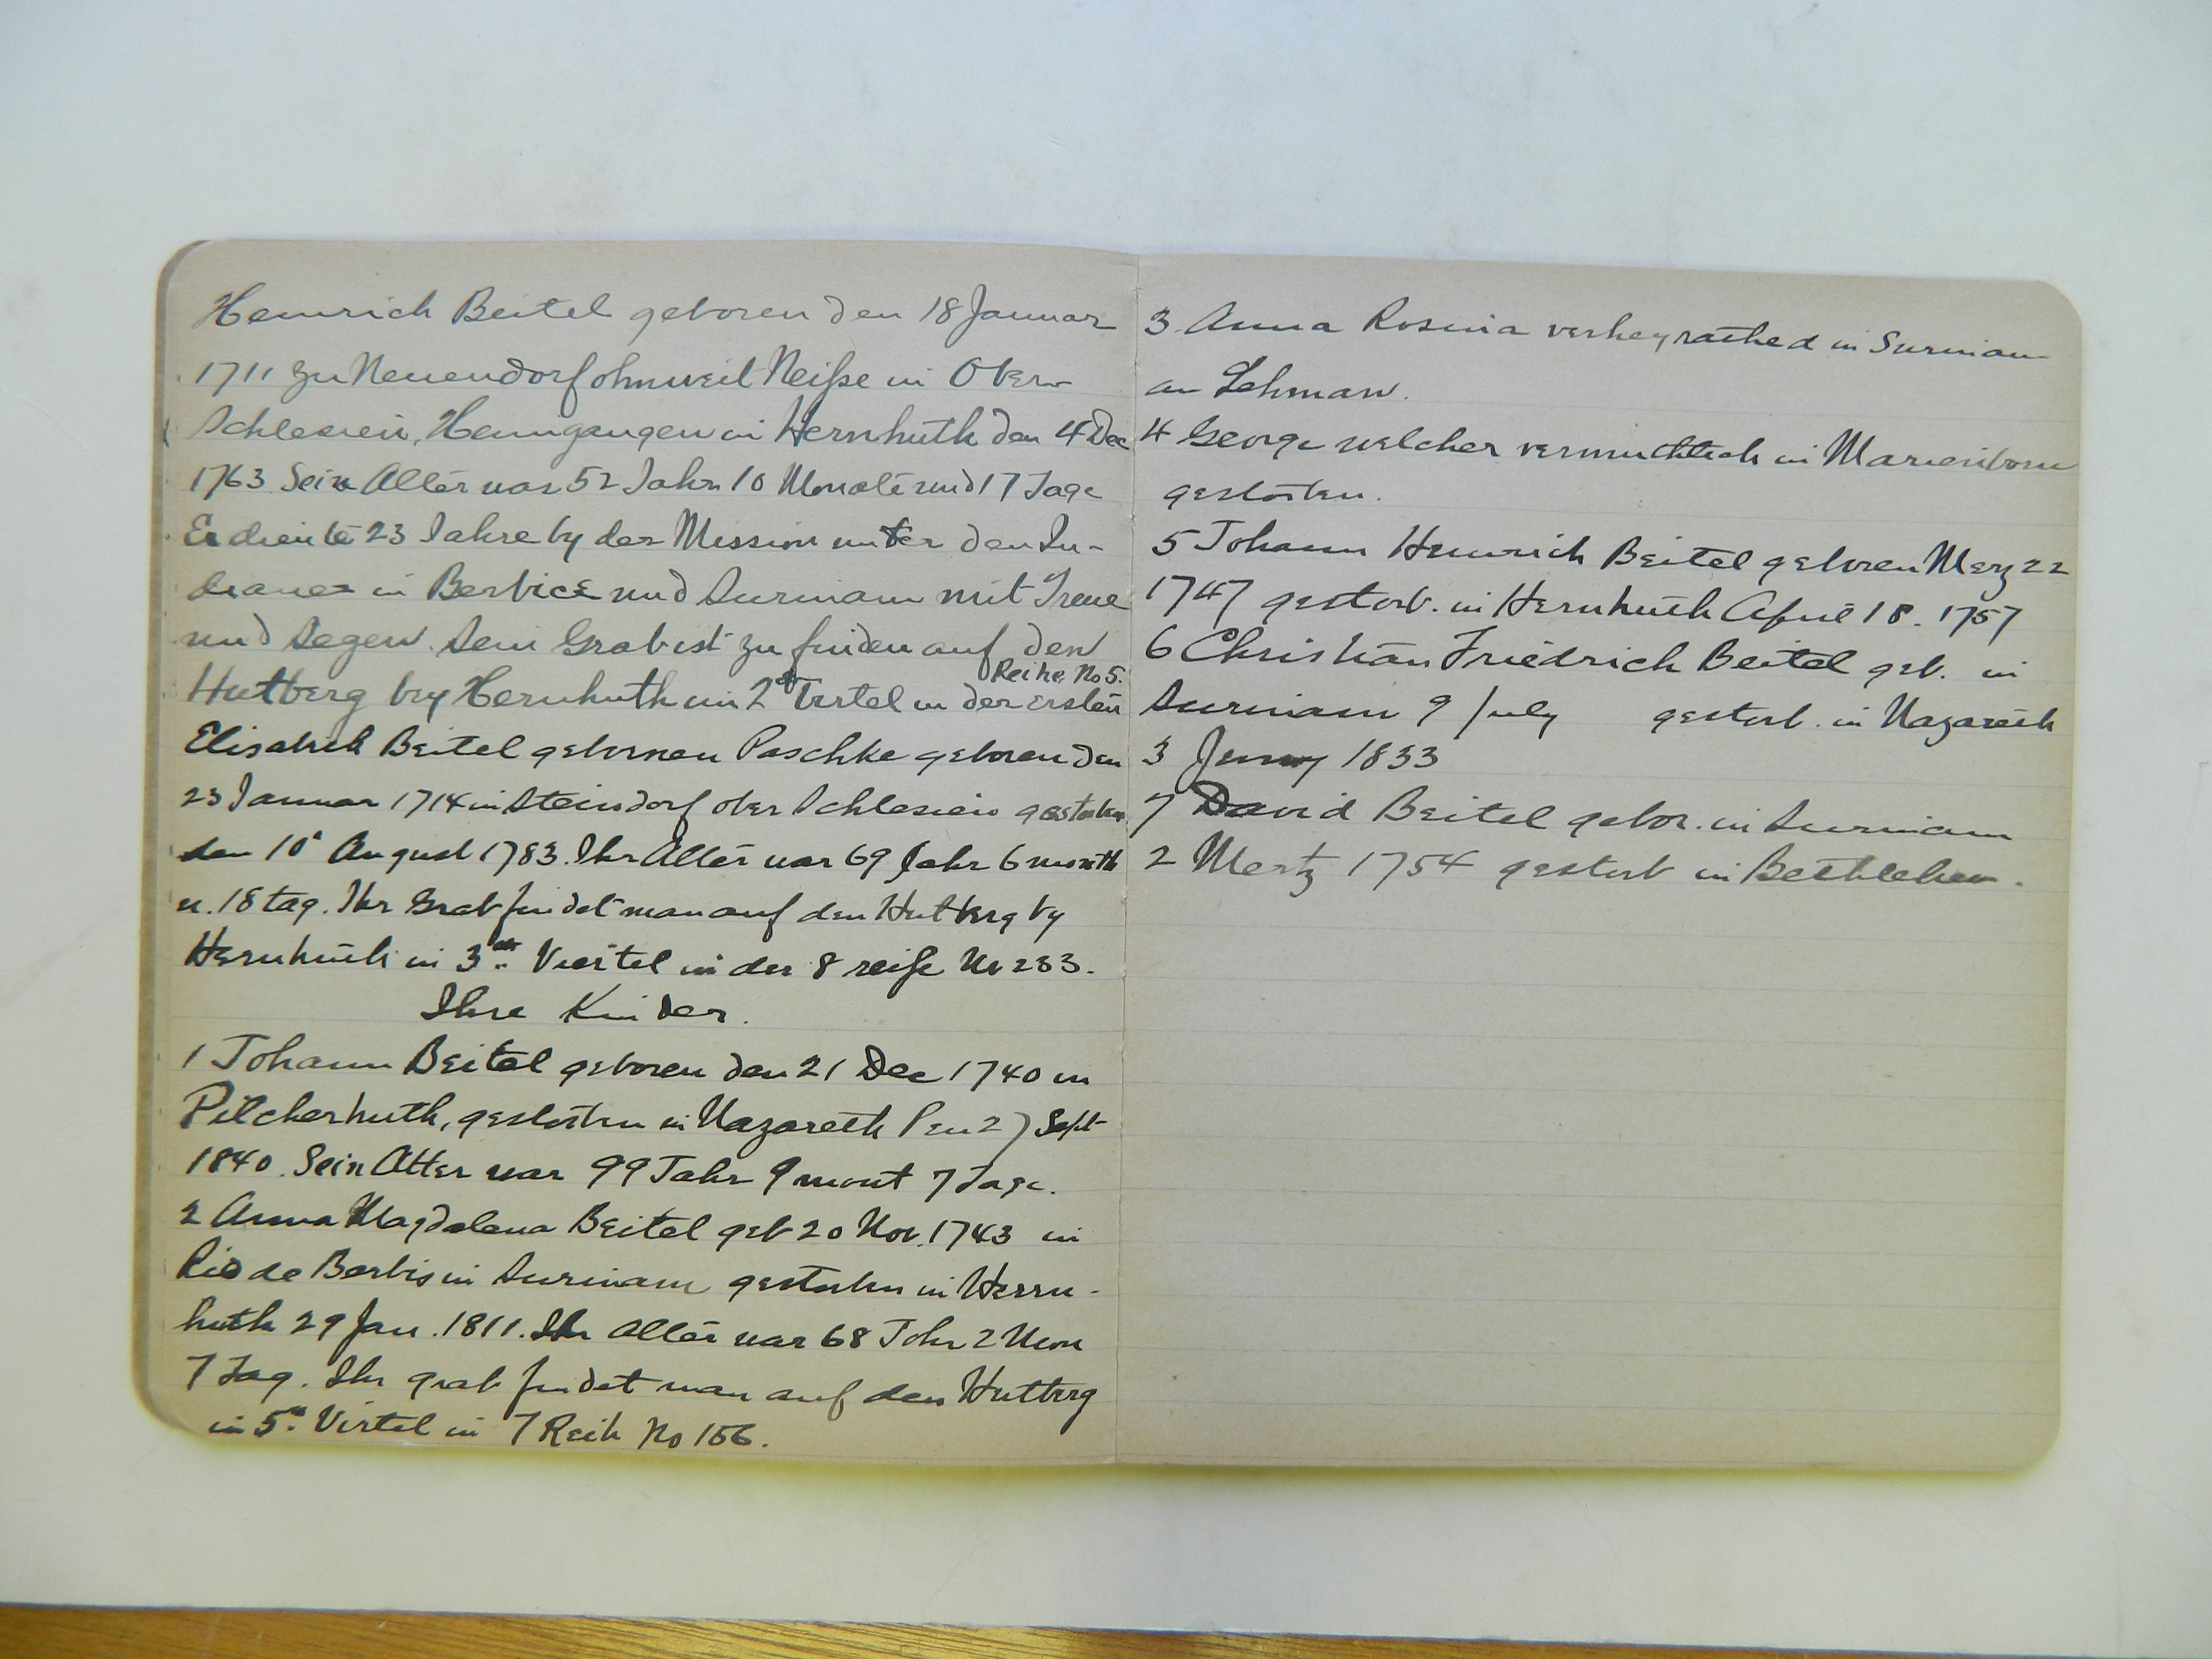 Heinrich Beitel geboren den 18 Januar
1711 zu Neuendorf ohnweit Neiße in Ober
Schlesien, Heimgangen in Hernhuth den 4 Dec
1763 Sein Alter war 52 Jahr 10 Monate und 17 Tage
Er diente 23 Jahre by der Mission unter den In-
dianer in Berbice und Surinam mit Treue
und Segen. Sein Grab ist zu finden auf den
Reihe No 5.
Hutberg bey Hernhuth im 2t Virtel in der ersten
Elisabeth Beitel gebornen Paschke geboren den
23 Januar 1714 in Steindorf ober Schlesien gestorben
den 10 August 1783. Ihr Alter war 69 Jahr 6 month
u. 18 tag. Ihr Grab findet man auf den Hutberg by
Hernhuth in 3ten Viertel in der 8 reihe No 233.
Ihre Kinder.
1 Johann Beitel geboren den 21 Dec 1740 in
Pilcherhuth, gestorben in Nazareth Pen 27 Sept
1840. Sein Alter war 99 Jahr 9 mont 7 Tage.
2 Anna Magdalena Beitel geb 20 Nov. 1743 in
Rio de Berbis in Surinam gestorben in Herrn-
huth 29 Jan. 1811. Ihr Alter war 68 Jahr 2 Mon
7 Tag. Ihr grab findet man auf den Hutberg
in 5n Virtel in 7 Reih No 156.
3. Anna Rosina verheyrathed in Surinam
an Lehman.
4 George welcher vermuthlich in Marienborn
gestorben.
5 Johann Heinrich Beitel geboren Merz 22
1747 gestorb. in Hernhuth April 18. 1757
6 Christian Friedrich Beitel geb. in
Surinam 9 July gestorb. in Nazareth
3 Jenny 1833
7 David Beitel gebor. in Surinam
2 Mertz 1754 gestorb in Bethlehem.